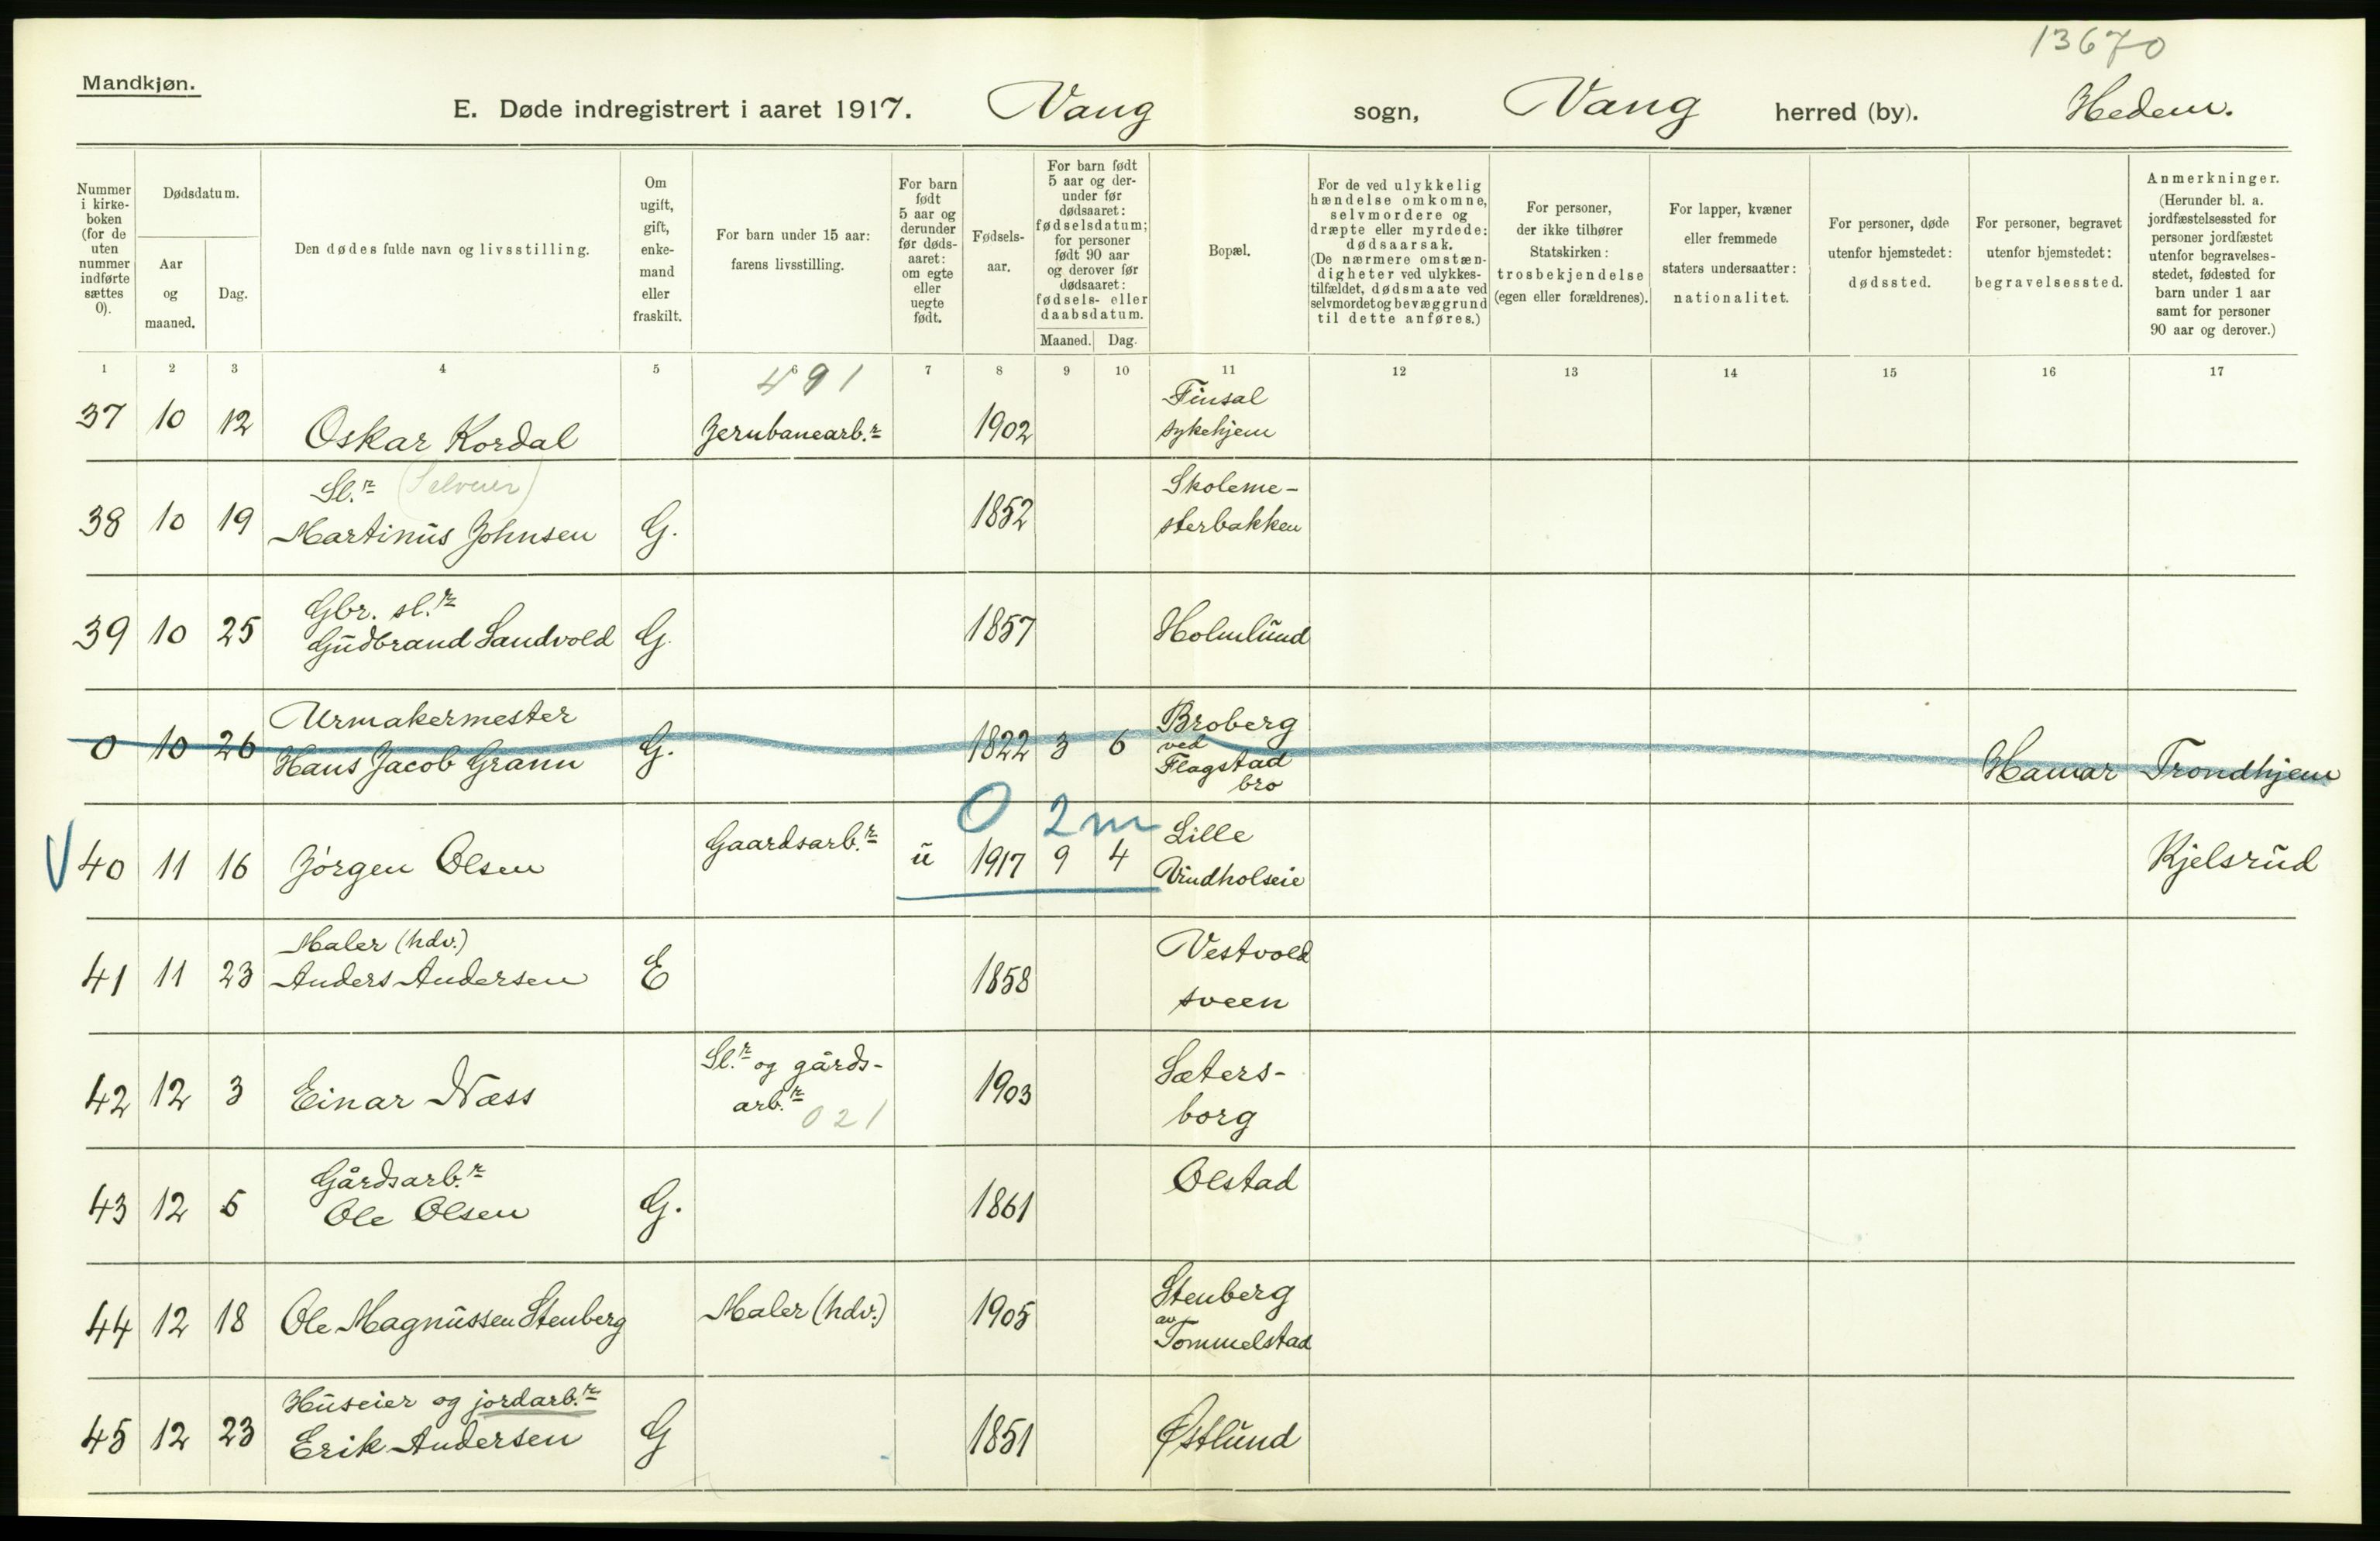 13670
Mandkjøn.
E. Døde indregistrert i aaret 1917. Vang sogn, Vang herred (by). Hedem.
Nummer i kirke-boken (for de uten nummer indførte sættes 0).
Dødsdatum.
Aar og maaned.
Dag.
Den dødes fulde navn og livsstilling.
Om ugift, gift, enke-mand eller fraskilt.
For barn under 15 aar: farens livsstilling.
For barn født 5 aar og derunder før døds-aaret: om egte eller uegte født.
Fødsels-aar.
For barn født 5 aar og der-under før dødsaaret: fødselsdatum; for personer født 90 aar og derover før dødsaaret: fødsels- eller daabsdatum.
Maaned. Dag.
Bopæl.
For de ved ulykkelig hændelse omkomne, selvmordere og dræpte eller myrdede: dødsaarsak. (De nærmere omstæn-digheter ved ulykkes-tilfældet, dødsmaate ved selvmordet og bevæggrund til dette anføres.)
For personer, der ikke tilhører Statskirken: trosbekjendelse (egen eller forældrenes).
For lapper, kvæner eller fremmede staters undersaatter: nationalitet.
For personer, døde utenfor hjemstedet: dødssted.
For personer, begravet utenfor hjemstedet: begravelsessted.
Anmerkninger. (Herunder bl. a. jordfæstelsessted for personer jordfæstet utenfor begravelses-stedet, fødested for barn under 1 aar samt for personer 90 aar og derover.)
1 2 3 4 5 6 7 8 9 10 11 12 13 14 15 16 17
491
37 10 12 Oskar Kordal Jernbanearb.r 1902 Finsal sykehjem
Sl.r (Selveier)
38 10 19 Martinus Johnsen G. 1852 Skoleme-sterbakken
Gbr. sl.r
39 10 25 Gudbrand Sandvold G. 1857 Holmlund
Urmakermester
0 10 26 Hans Jacob Grann G. 1822 3 6 Broberg ved Flagstad bro Hamar Trondhjem
0 2 m
V 40 11 16 Jørgen Olsen Gaardsarb.r u 1917 9 4 Lille Vindholseie Kjelsrud
Maler (hdv.)
41 11 23 Anders Andersen E 1858 Vestvold sveen
42 12 3 Einar Næss Sl.r og gårds-arb.r 1903 Sæters-borg
021
Gårdsarb.r
43 12 5 Ole Olsen G. 1861 Olstad
44 12 18 Ole Magnussen Stenberg Maler (hdv.) 1905 Stenberg av Tommelstad
Huseier og jordarb.r
45 12 23 Erik Andersen G 1851 Østlund